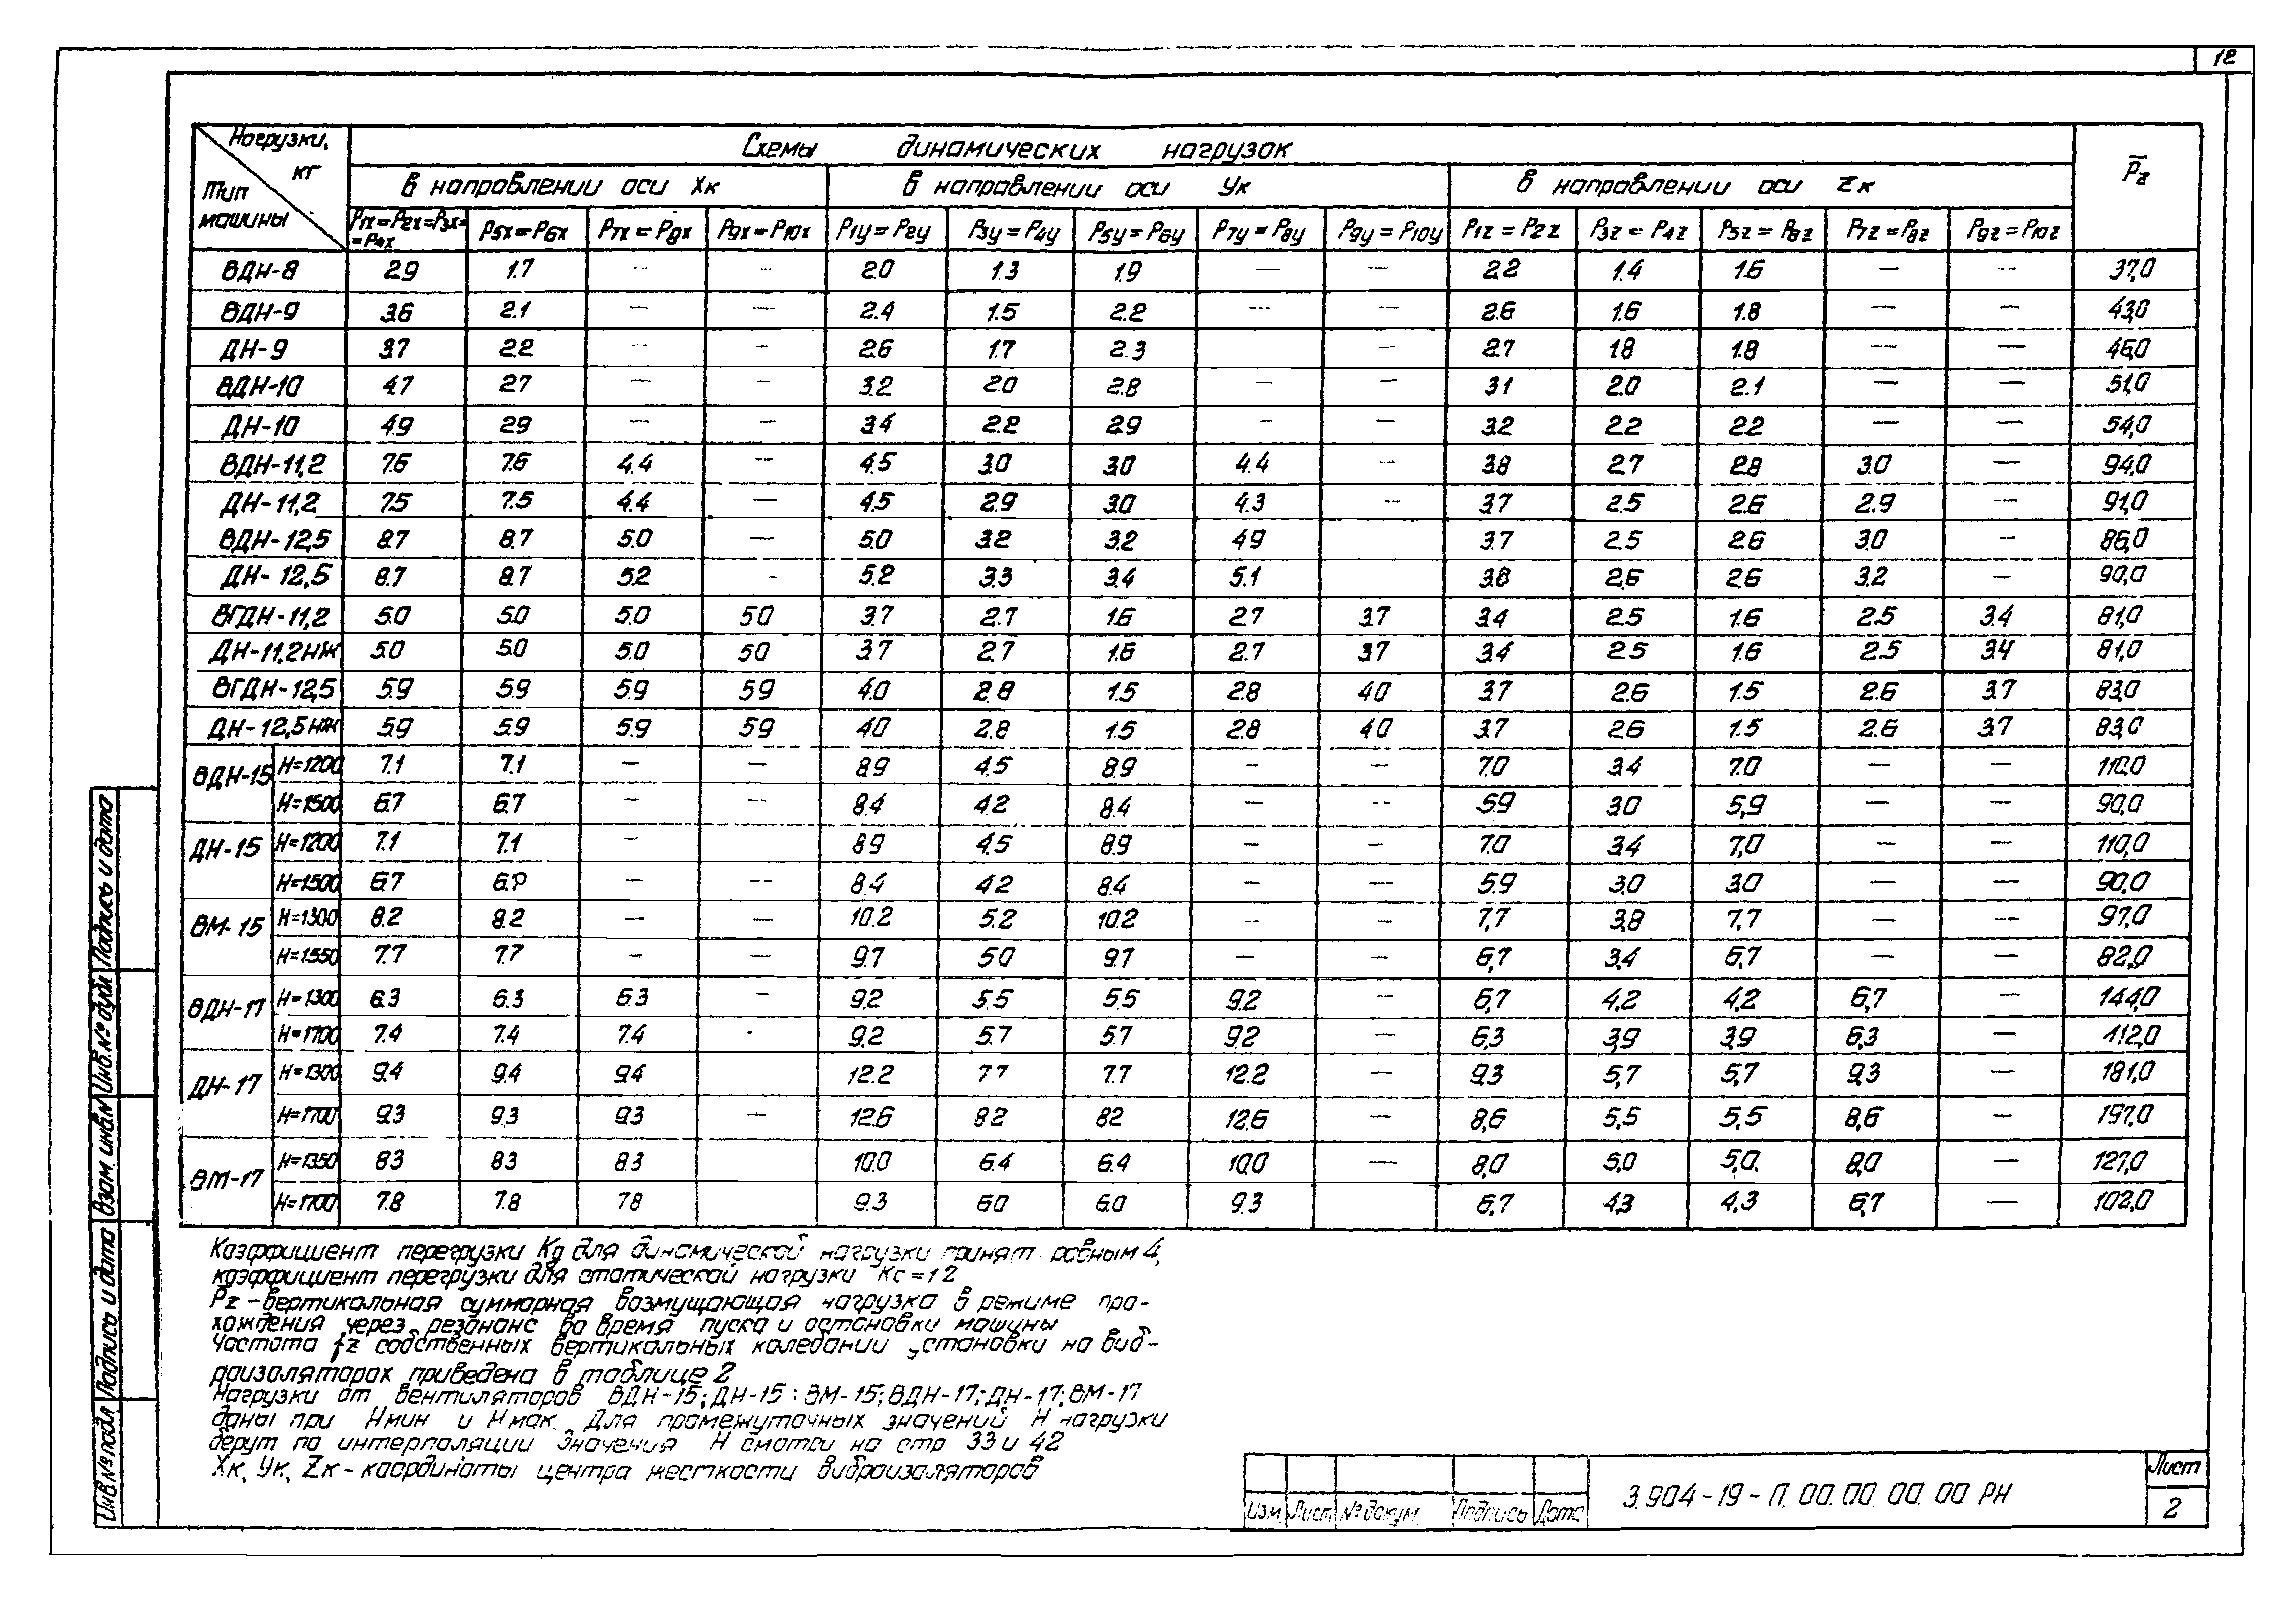 12
Нагрузки, кг
Тип машины
Схемы динамических нагрузок
P̄z
в направлении оси Xк
в направлении оси Yк
в направлении оси Zк
P1x=P2x=P3x==P4x P5x=P6x P7x=P8x P9x=P10x P1y=P2y P3y=P4y P5y=P6y P7y=P8y P9y=P10y P1z=P2z P3z=P4z P5z=P6z P7z=P8z P9z=P10z
ВДН-8 2.9 1.7 — — 2.0 1.3 1.9 — — 2.2 1.4 1.6 — — 37,0
ВДН-9 3.6 2.1 — — 2.4 1.5 2.2 — — 2.6 1.6 1.8 — — 43,0
ДН-9 3.7 2.2 — — 2.6 1.7 2.3 — 2.7 1.8 1.8 — — 46,0
ВДН-10 4.7 2.7 — — 3.2 2.0 2.8 — — 3.1 2.0 2.1 — — 51,0
ДН-10 4.9 2.9 — — 3.4 2.2 2.9 — — 3.2 2.2 2.2 — — 54,0
ВДН-11,2 7.6 7.6 4.4 — 4.5 3.0 3.0 4.4 — 3.8 2.7 2.8 3.0 — 94,0
ДН-11,2 7.5 7.5 4.4 — 4.5 2.9 3.0 4.3 — 3.7 2.5 2.6 2.9 — 91,0
ВДН-12,5 8.7 8.7 5.0 — 5.0 3.2 3.2 4.9 3.7 2.5 2.6 3.0 — 86,0
ДН-12,5 8.7 8.7 5.2 - 5.2 3.3 3.4 5.1 3.8 2.6 2.6 3.2 — 90,0
ВГДН-11,2 5.0 5.0 5.0 5.0 3.7 2.7 1.6 2.7 3.7 3.4 2.5 1.6 2.5 3.4 81,0
ДН-11,2нж 5.0 5.0 5.0 5.0 3.7 2.7 1.6 2.7 3.7 3.4 2.5 1.6 2.5 3.4 81,0
ВГДН-12,5 5.9 5.9 5.9 5.9 4.0 2.8 1.5 2.8 4.0 3.7 2.6 1.5 2.6 3.7 83,0
ДН-12,5нж 5.9 5.9 5.9 5.9 4.0 2.8 1.5 2.8 4.0 3.7 2.6 1.5 2.6 3.7 83,0
ВДН-15 H=1200 7.1 7.1 — — 8.9 4.5 8.9 — — 7.0 3.4 7.0 — — 110,0
H=1500 6.7 6.7 — — 8.4 4.2 8.4 — — 5.9 3.0 5,9 — — 90,0
ДН-15 H=1200 7.1 7.1 — 8.9 4.5 8.9 — — 7.0 3.4 7,0 — — 110,0
H=1500 6.7 — — 8.4 4.2 8.4 — — 5.9 3.0 3.0 — — 90,0
ВМ-15 H=1300 8.2 8.2 — — 10.2 5.2 10.2 — — 7,7 3,8 7,7 — — 97,0
H=1550 7.7 7.7 — — 9.7 5.0 9.7 — — 6,7 3,4 6,7 — — 82,0
ВДН-17 H=1300 6.3 6.3 6.3 — 9.2 5.5 5.5 9.2 — 6,7 4,2 4,2 6,7 — 144,0
H=1700 7.4 7.4 7.4 - 9.2 5.7 5.7 9.2 — 6,3 3,9 3,9 6,3 — 112,0
ДН-17 H=1300 9.4 9.4 9.4 12.2 7.7 7.7 12.2 — 9,3 5,7 5,7 9,3 — 181,0
H=1700 9.3 9.3 9.3 — 12.6 8.2 8.2 12.6 — 8,6 5,5 5,5 8,6 — 197,0
ВМ-17 H=1350 8.3 8.3 8.3 10.0 6.4 6.4 10.0 — 8,0 5,0 5,0 8,0 — 127,0
H=1700 7.8 7.8 7.8 9.3 6.0 6.0 9.3 6,7 4,3 4,3 6,7 — 102,0
Коэффициент перегрузки Kд для динамической нагрузки принят равным 4,
коэффициент перегрузки для статической нагрузки Kс=1 2
Pz – вертикальная суммарная возмущающая нагрузка в режиме про-
хождения через резонанс во время пуска и остановки машины
Частота fz собственных вертикальных колебании установки на виб-
роизоляторах приведена в таблице 2
Нагрузки от вентиляторов ВДН-15; ДН-15; ВМ-15; ВДН-17; ДН-17; ВМ-17
даны при Hмин и Hмак. Для промежуточных значений H нагрузки
берут по интерполяции Значения H смотри на стр 33 и 42
Xк, Yк, Zк – координаты центра жесткости виброизоляторов
Изм Лист № докум. Подпись Дата
3.904-19-П.00.00.00.00 РН
Лист
2
Инв.№ подл Подпись и дата Взам. инв.№ Инв.№ дубл Подпись и дата